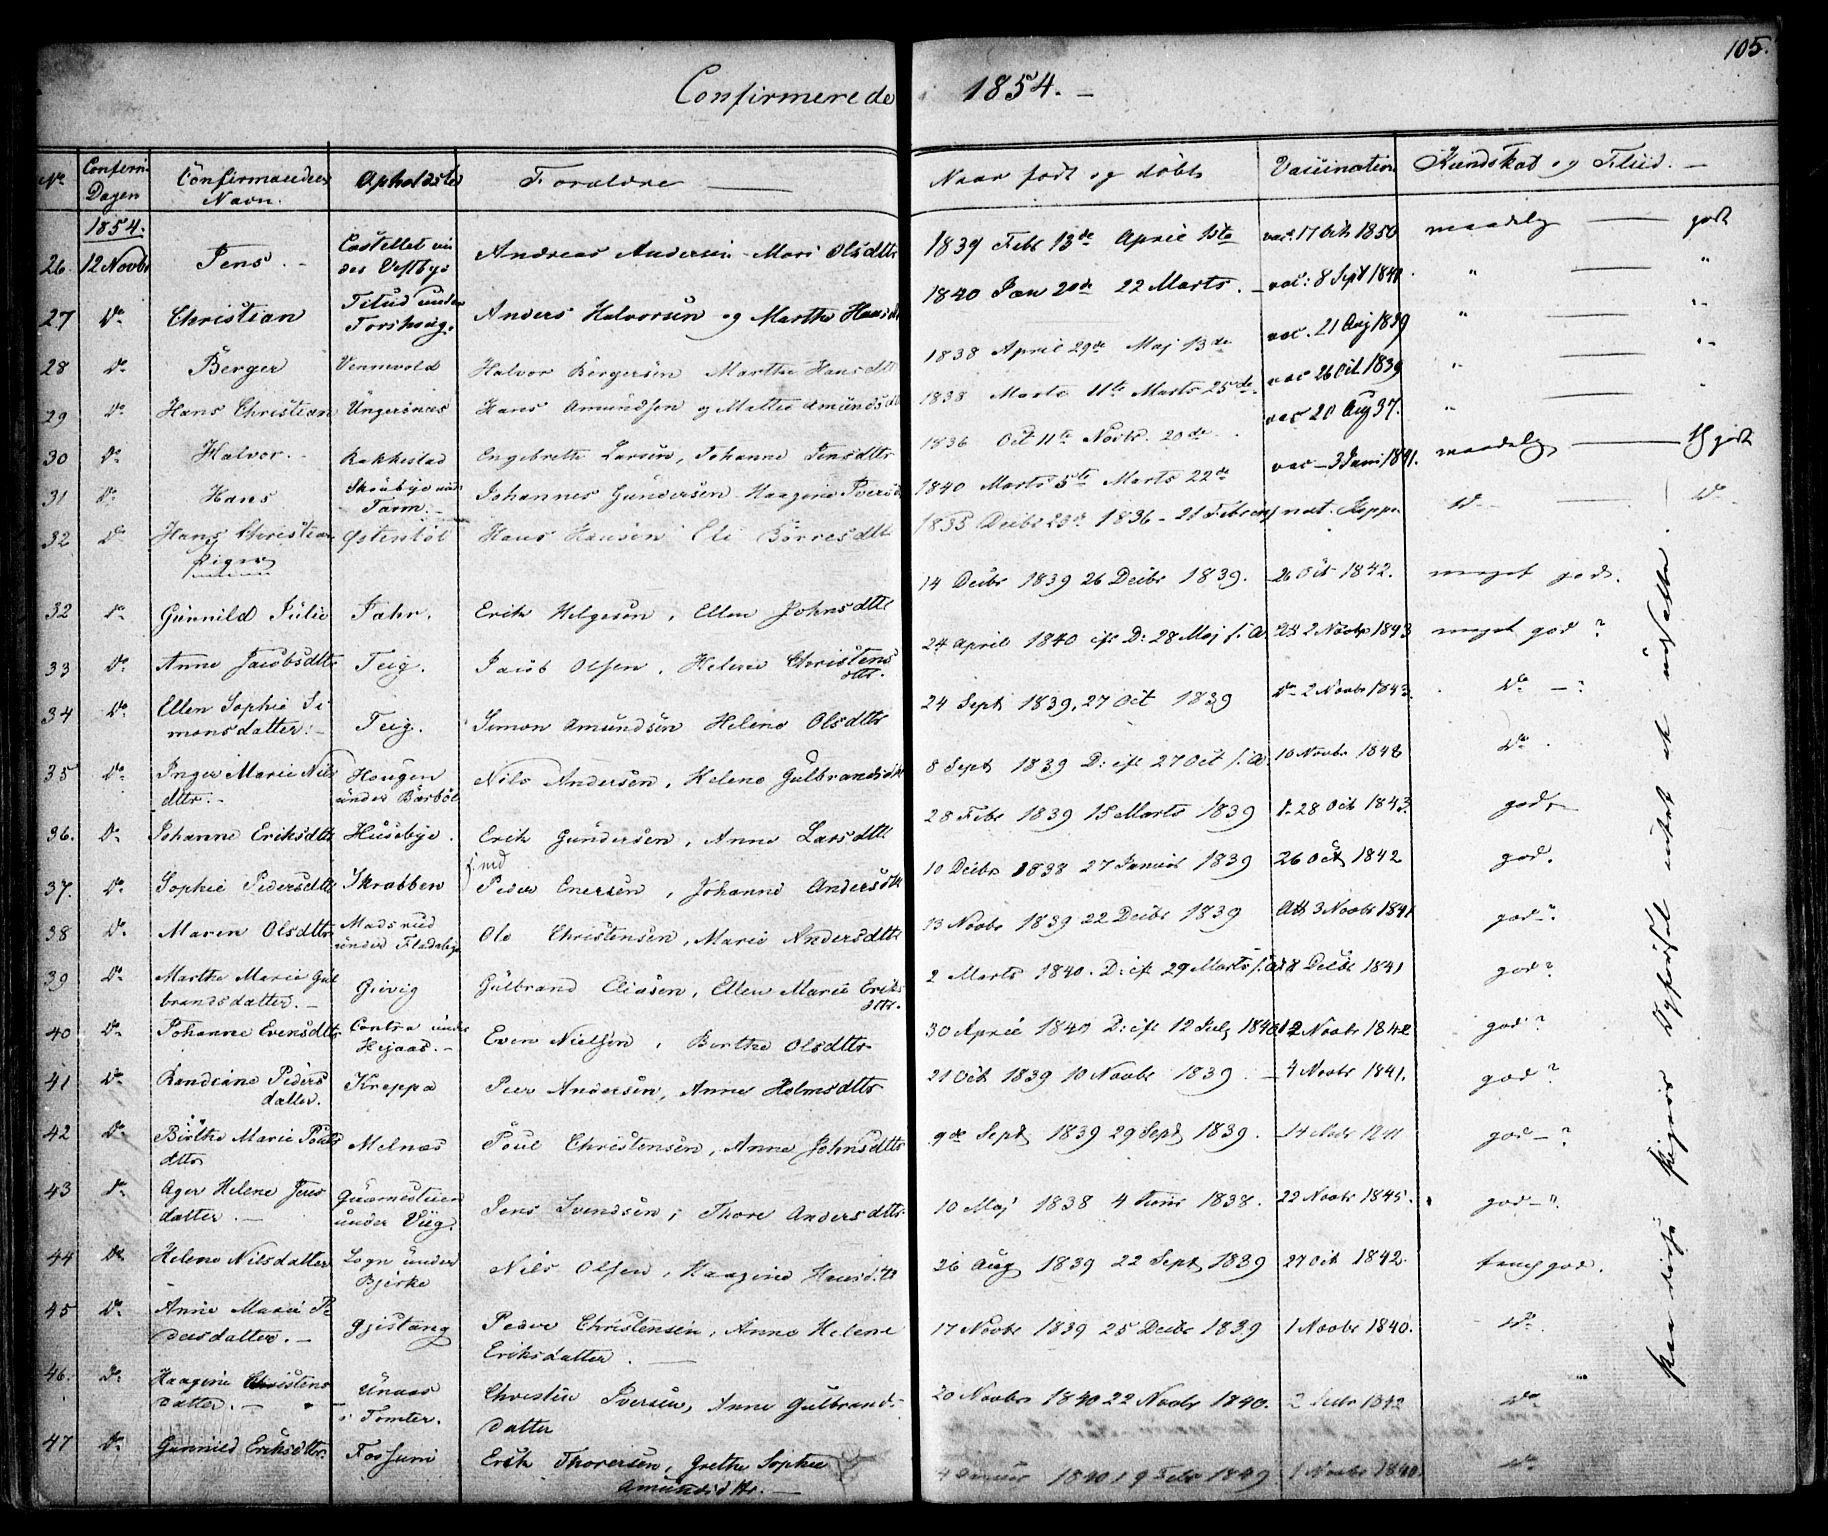 105.
Confirmerede 1854. —
No. Confirm: Dagen Confirmandens Navn. Opholdsted Forældre — Naar født og døbt Vaccination Kundskab og Fliid. —
1854.
26. 12 Novbr Jens. — Castellet Andreas Andersen Mari Olsdttr 1839 Febr 13de April 1ste vac. 17 Oct 1850 maadelig — godt
27 Do Christian under Anders Halvorsen og Marthe Hansdt 1840 Jan 20de 22 Marts. vac: 8 Sept 1840. " — "
28 Do Berger Vennevold Halvor Børgersen Marthe Hansdttr 1838 April 29de Maj 13de vac. 21 Aug 1839 " — "
29 Do Hans Christian Ungersnæs Hans Amundsen og Mattie Amundsd 1838 Marts 11te Marts 25de vac 26 Oct 1839 " — "
30 Do Halvor. Rakkestad Engebreth Larsen, Johanne Jensdttr 1836 Oct 11te Novbr. 20de vac 20 Aug 37. "
31 Do Hans Skoubye under Johannes Gundersen Haagine Iversd 1840 Marts 5te Marts 22de vac — 3 Juni 1841. maadelig — godt
32 Do Hans Christian Østenbøl Hans Hansen Eli Børresdttr 1835 Decbr 23de 1836 — 21 Februar nat. Kopper Do — Do
Piger
32 Do Gunnild Julie Fahr. Erik Helgesen, Ellen Johnsdttr 14 Decbr 1839 26 Decbr 1839. 26 Oct 1842. meget god.
33 Do Anne Jacobsdttr Teig. Jacob Olsen, Helene Christens
dttr. 24 April 1840 28 Maj s. A. 2 Novbr 1843 meget god ?
34 Do Ellen Sophie Si
monsdatter. — Teig. Simon Amundsen Helene Olsdttr 24 Sept 1839, 27 Oct 1839 Do 2 Novbr 1843. Do — ?
35 Do Inger Marie Nils
dttr. — Hougen
under Bærbøl Nils Andersen, Helene Gulbrandsdtt 8 Sept 1839 D: 27 Oct s. A. 10 Novbr 1842 Do
36. Do Johanne Eriksdttr Husebye. Erik Gundersen, Anne Larsdttr 28 Febr 1839 15 Marts 1839 28 Oct 1843. god.
37. Do Sophie Pedersdttr Skrabben Peder Enersen, Johanne Andersdtt 10 Decbr 1838 27 Januar 1839 26 Oct 1842 god.
38 Do Maren Olsdttr Madsrud
under Fladebye Ole Christensen, Marie Andersdttr 13 Novbr 1839 22 Decbr 1839 3 Novbr 1841 god — ?
39 Do Marthe Marie Gul
brandsdatter. — Gievig Gulbrand Eliasen, Ellen Marie Eriks
dttr. 2 Marts 1840. D: 29 Marts s. A. 8 Decbr 1841 god ?
40 Do Johanne Evensdttr Contra under
Hejaas. — Even Nielsen, Berthe Olsdttr 30 April 1840 D: 12 July 1840 2 Novbr 1842 god ?
41 Do Peders
datter. Kreppa Peer Andersen, Anne Holmsdttr 21 Oct 1839 10 Novbr 1839 — 4 Novbr 1841. god ?
42 Do Birthe Marie Pouls
dttr Melnæs Poul Christensen, Anne Johnsdttr 9de Sept 1839 29 Sept 1839. — 14 god — ?
43 Do Helene Jens
datter. — under Viig. Jens Svendsen, Thore Andersdttr. 10 Maj 1838 4 Juni 1838. 22 Novbr 1845. god — ?
44 Do Helene Nilsdatter Sogn under
Bjerke Nils Olsen, Haagine Hansdttr 26 Aug 1839 22 Sept 1839 27 Oct 1842. god.
45 Do Anne Marie Pe
dersdatter. — Gjistang Peder Christensen, Anne Helene
Eriksdatter. — 17 Novbr 1839 25 Decbr 1839 1 Novbr 1840. Do
46. Do Haagine Christens
datter. — Unaas
i Tomter. Christen Iversen, Anne Gulbrands
datter 20 Novbr 1840 22 Novbr 1840. 2 1842 Do
47 Do Gunnild Eriksdttr. Fossum Erik Thoresen, Grethe Sophie
Amundsdttr. — 4 Januar 1840 19 Febr 1840 1 Novbr 1840. Do